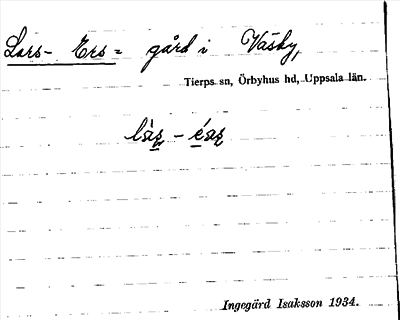 Lars-Ers= gård i Väsby,
Tierps sn, Örbyhus hd, Uppsala län.
Ingegärd Isaksson 1934.